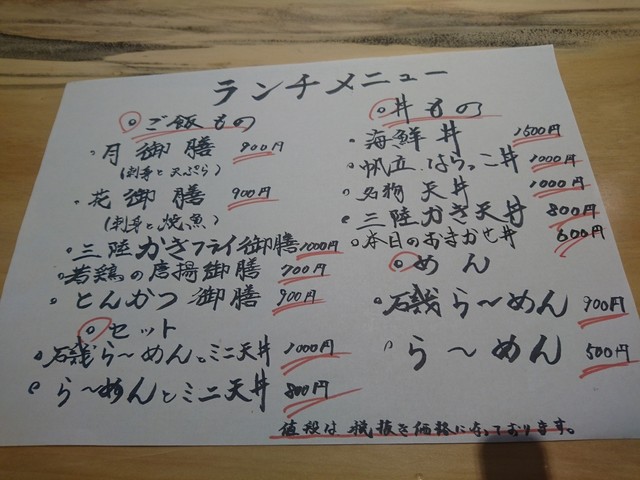 ランチメニュー
ご飯もの
月御膳 900円
(刺身と天ぷら)
花御膳 900円
(刺身と焼魚)
三陸かきフライ御膳 1000円
若鶏の唐揚御膳 700円
とんかつ御膳 900円
セット
磯ら〜めんとミニ天丼 1000円
ら〜めんとミニ天丼 800円
丼もの
海鮮丼 1500円
帆立.はらっこ丼 1000円
名物天丼 1000円
三陸かき天丼 800円
本日のおまかせ丼 600円
めん
磯ら〜めん 900円
ら〜めん 500円
値段は税抜き価格になっております。